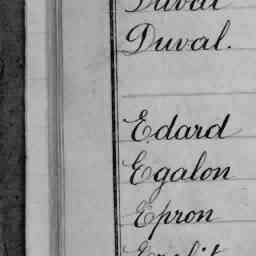 Duval
Duval.
Edard
Egalon
Epron